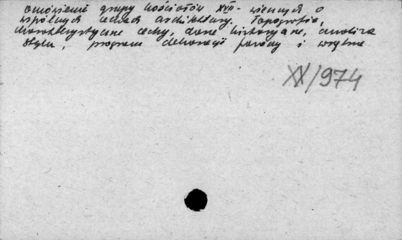 omówienie grupy kościołów XIII-wiecznych o
wspólnych cechach architektury. Topografia,
charakterystyczne cechy, dane historyczne, analiza
stylu, program dekoracji fasady i wnętrza
XX/974